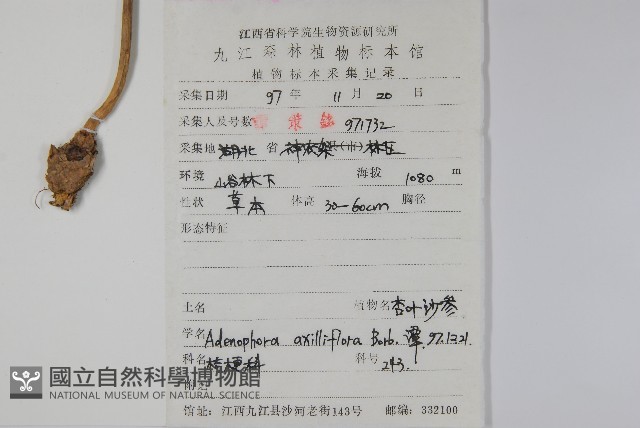 江西省科学院生物资源研究所
九江森林植物标本馆
植物标本采集记录
采集日期 97 年 11 月 20 日
采集人及号数 971732
采集地 湖北 省 神农架 县(市) 林区
环境 山谷林下 海拔 1080 m
性状 草本 体高 30-60cm 胸径
形态特征
土名 植物名 杏叶沙参
学名 Adenophora axilliflora Borb. 谭
科名 桔梗科 科号 243.
附记
國立自然科學博物館
NATIONAL MUSEUM OF NATURAL SCIENCE
馆址: 江西九江县沙河老街143号 邮编: 332100